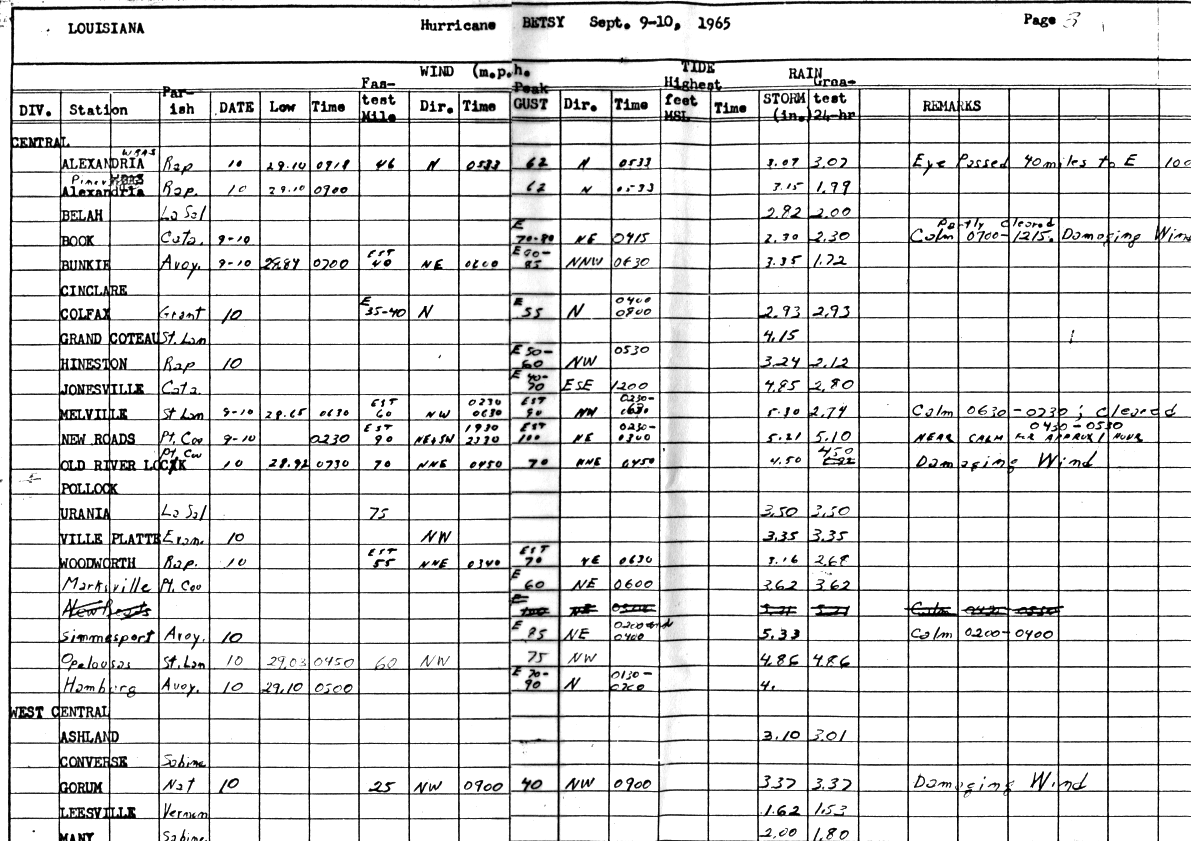 LOUISIANA Hurricane BETSY Sept. 9-10, 1965 Page 3
WIND (m.p.h. TIDE RAIN
DIV. Station Par-ish DATE Low Time Fas-test Mile Dir. Time Peak GUST Dir. Time Highest feet MSL Time STORM (in.) Grea-test 24-hr REMARKS
CENTRAL
ALEXANDRIA Rap 10 29.10 0918 46 N 0533 62 N 0533 3.07 3.07 Eye Passed 40 miles to E 100
Alexandria Rap. 10 29.10 0900 62 N 0533 3.15 1.99
BELAH La Sal 2.82 2.00
BOOK Cata. 9-10 E 70-80 NE 0415 2.30 2.30 Partly Cleared Calm 0700-1215. Damaging Wind
BUNKIE Avoy. 9-10 28.84 0700 EST 40 NE 0600 NNW 0630 3.35 1.72
CINCLARE
COLFAX Grant 10 E 35-40 N E 55 N 0400 0800 2.93 2.93
GRAND COTEAU St. Lan 4.15
HINESTON Rap 10 E 50-60 NW 0530 3.24 2.12
JONESVILLE Cata. E 40-70 ESE 1200 4.85 2.80
MELVILLE St Lan 9-10 28.65 0630 EST 60 NW 0230 0630 EST 90 NW 0230-0630 5.30 2.74 Calm 0630-0230; cleared
NEW ROADS Pt. Cou 9-10 0230 EST 90 NE+SW 1930 2330 EST 100 NE 0230-0300 5.21 5.10 0430-0530 NEAR CALM FOR APPROX 1 HOUR
OLD RIVER LOCK Pt. Cou 10 28.92 0730 70 NNE 0450 70 NNE 0450 4.50 4.50 Damaging Wind
POLLOCK
URANIA La Sal 75 3.50 3.50
VILLE PLATTE Evan. 10 NW 3.35 3.35
WOODWORTH Rap. 10 EST 55 NNE 0340 EST 70 NE 0630 3.16 2.68
Marksville Pt. Cou E 60 NE 0600 3.62 3.62
New Roads
Simmesport Avoy. 10 E 85 NE 0200 and 0400 5.33 Calm 0200-0400
Opelousas St. Lan 10 29.03 0450 60 NW 75 NW 4.86 4.86
Hamburg Avoy. 10 29.10 0500 E 70-90 N 0130-0200 4.
WEST CENTRAL
ASHLAND 3.10 3.01
CONVERSE Sabine
GORUM Nat 10 25 NW 0900 40 NW 0900 3.37 3.37 Damaging Wind
LEESVILLE Vernon 1.62 1.53
MANY Sabine 2.00 1.80